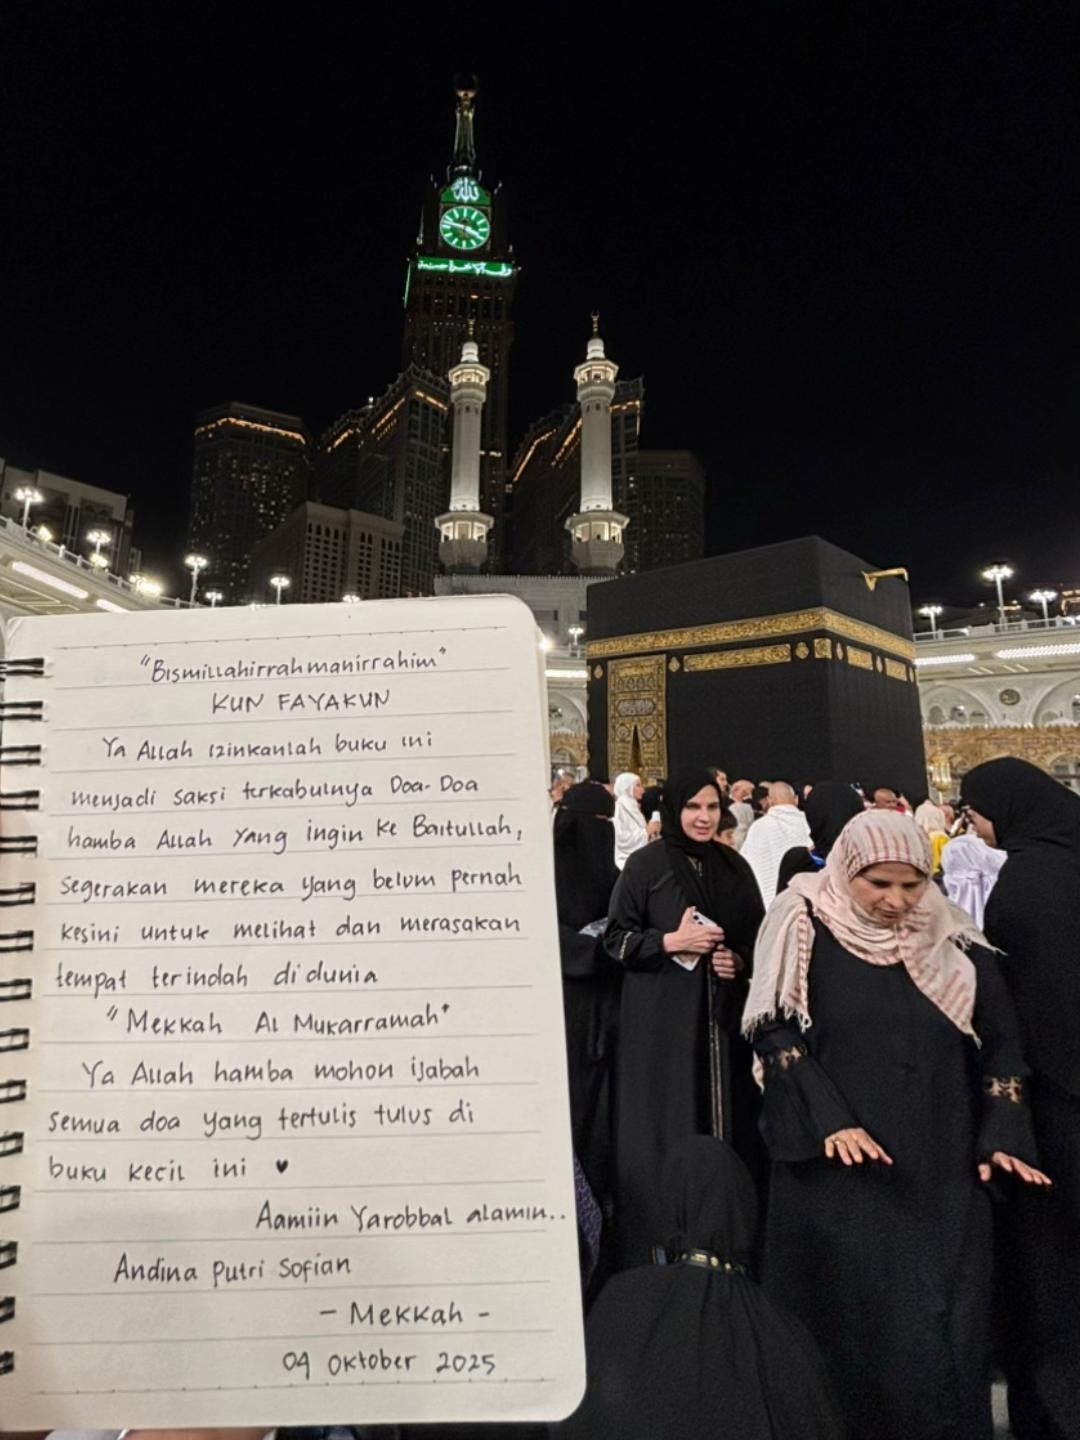 الله
"Bismillahirrahmanirrahim"
KUN FAYAKUN
Ya Allah izinkanlah buku ini
menjadi saksi terkabulnya Doa-Doa
hamba Allah yang ingin ke Baitullah,
segerakan mereka yang belum pernah
kesini untuk melihat dan merasakan
tempat terindah di dunia
"Mekkah Al Mukarramah"
Ya Allah hamba mohon ijabah
semua doa yang tertulis tulus di
buku kecil ini ♥
Aamiin Yarobbal alamin..
Andina Putri Sofian
- Mekkah -
09 Oktober 2025